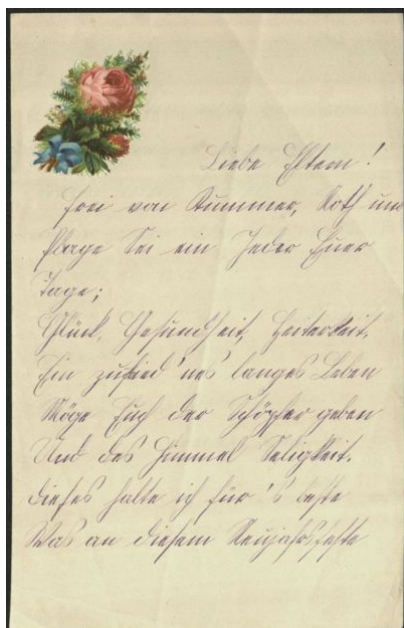 Liebe Eltern!
Frei von Kummer, Noth und
Plage Sei ein Jeder Euer
Tage;
Glück, Gesundheit, Heiterkeit,
Ein zufried'nes langes Leben
Möge Euch der Schöpfer geben
Und des Himmel Seligkeit.
Dieses halte ich für's beste
Was an diesem Neujahrsfeste